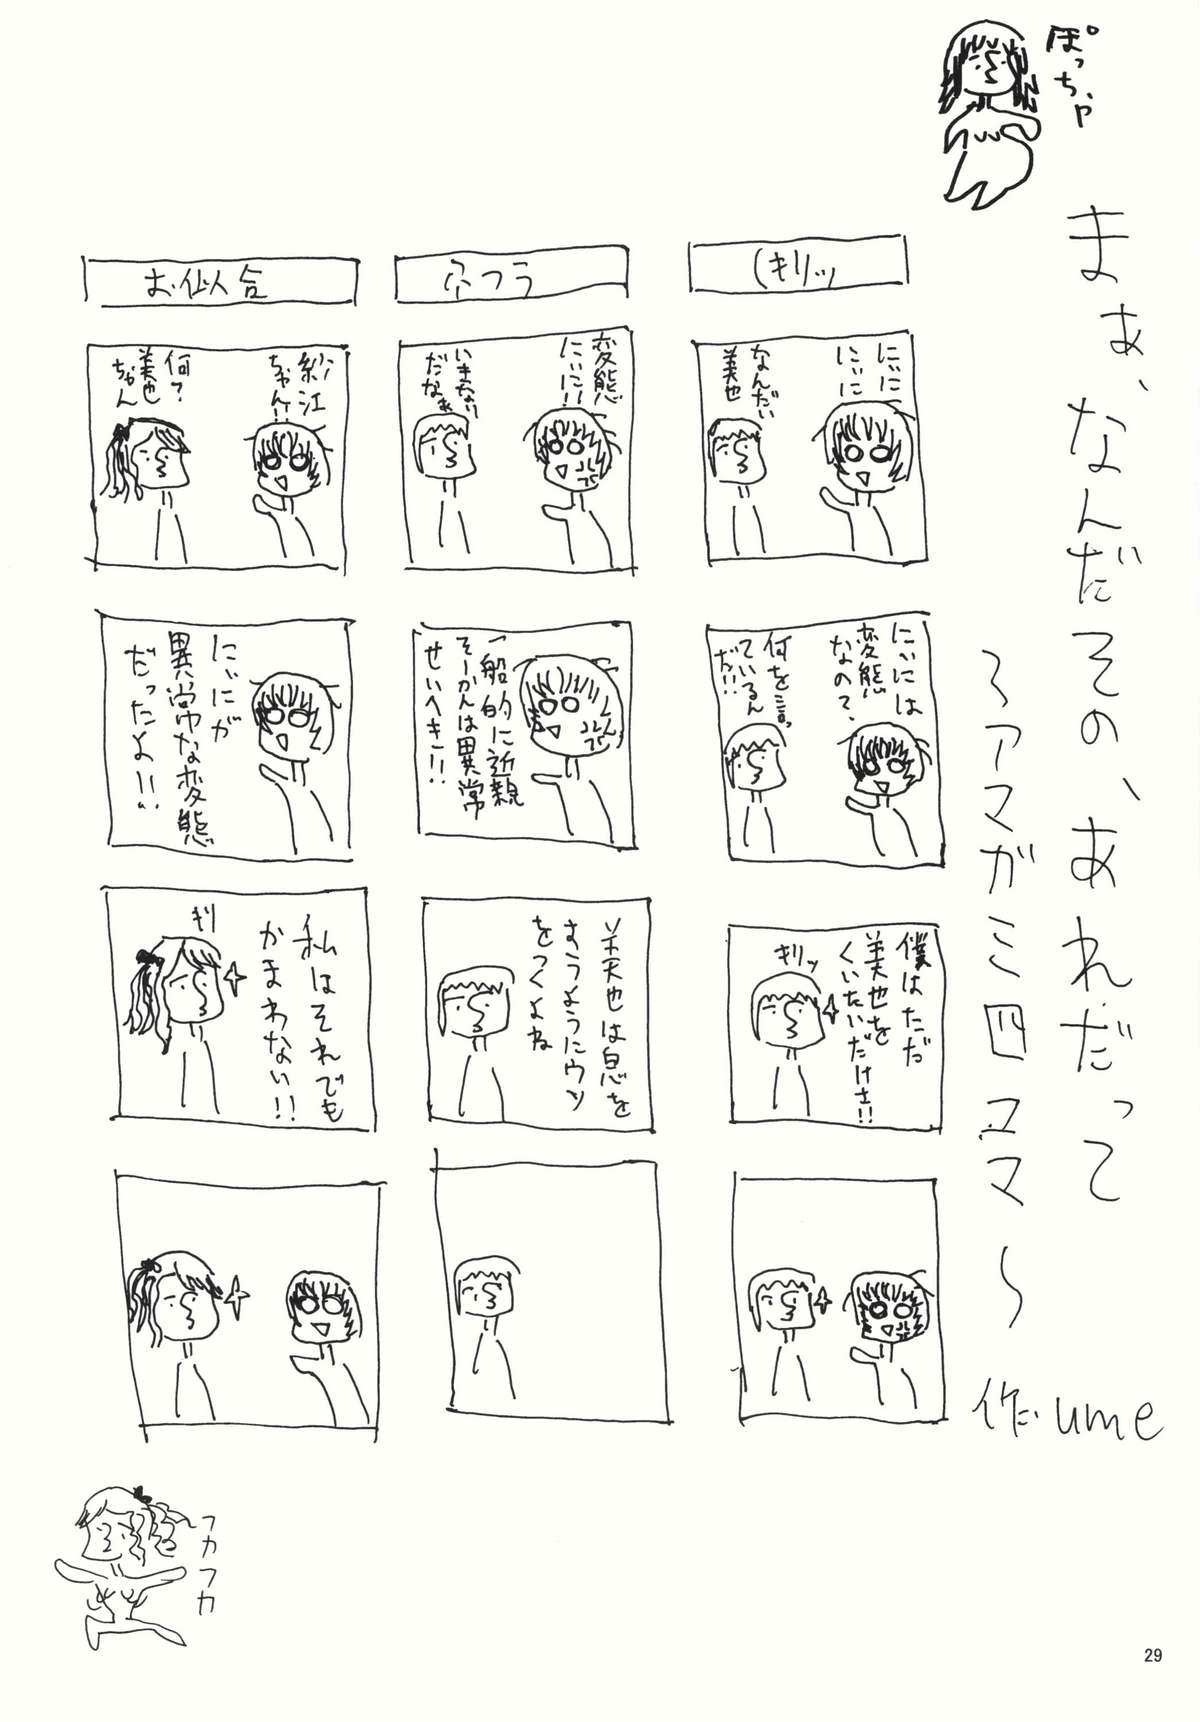 ぽっちゃ
まぁ、なんだその、あれだって
～アマガミ四コマ～
作だ ume
(キリッ
にぃに
にぃに
なんだい
美也
にぃには
変態
なので、
何を言っ
ているん
だ!!!
僕はただ
美也を
くいたいだけさ!!
キリッ
変態
にぃに!!
いきなり
だなぁ
一般的に近親
そーかんは異常
せいへき!!
美也は息を
すうようにウソ
をつくよね
お似合
紗江
ちゃん!!
何?
美也
ちゃん
にぃにが
異常な変態
だったよ!!
私はそれでも
かまわない!!
キリ
フカフカ
29